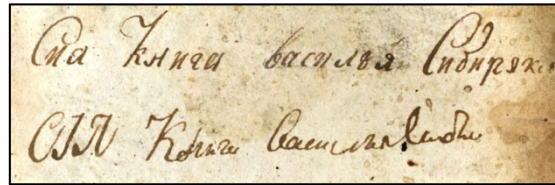 Сиа Книга василья Сибиряко
СІЯ Книги Василья Сиби